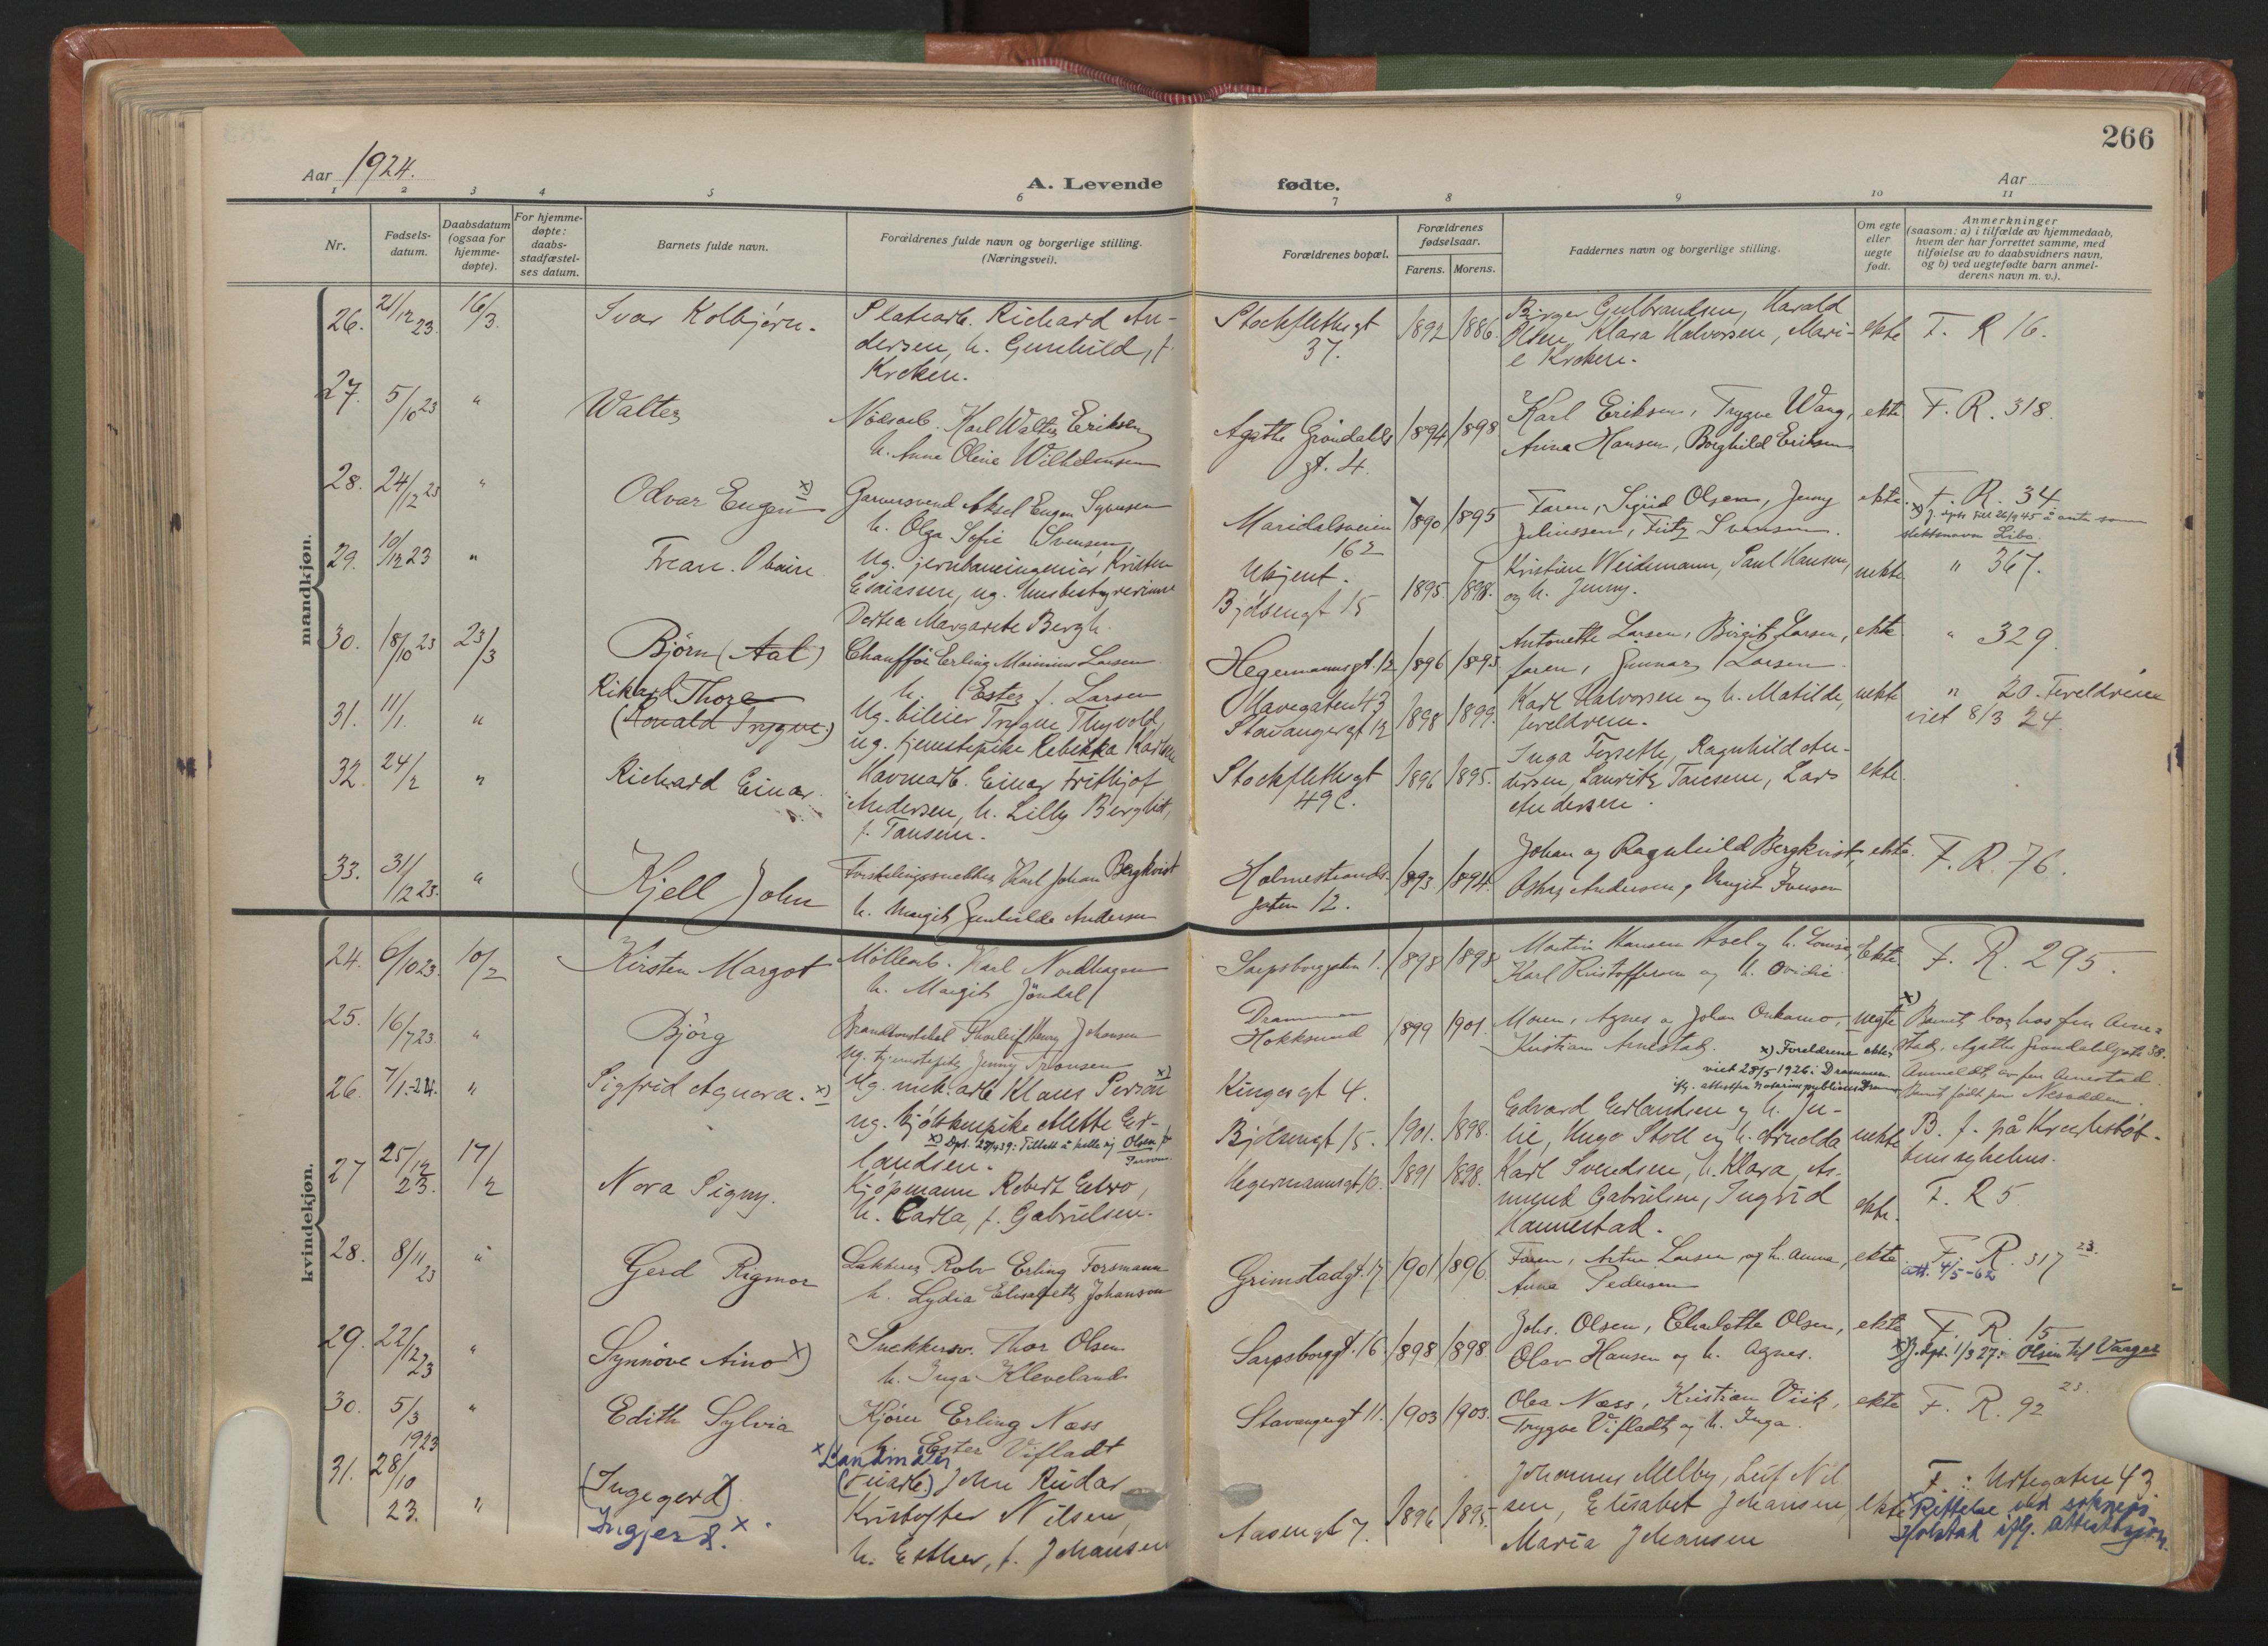 266
Aar 1924.
A. Levende fødte.
Aar
1 2 3 4 5 6 7 8 9 10 11
Nr.
Fødsels-
datum.
Daabsdatum
(ogsaa for
hjemme-
døpte).
For hjemme-
døpte:
daabs-
stadfæstel-
ses datum.
Barnets fulde navn.
Forældrenes fulde navn og borgerlige stilling.
(Næringsvei).
Forældrenes bopæl.
Forældrenes
fødselsaar.
Farens. Morens.
Faddernes navn og borgerlige stilling.
Om egte
eller
uegte
født.
Anmerkninger
(saasom: a) i tilfælde av hjemmedaab,
hvem der har forrettet samme, med
tilføielse av to daabsvidners navn,
og b) ved uegtefødte barn anmel-
derens navn m. v.).
mandkjøn.
26. 21/12 23. 16/3. Ivar Kolbjørn.
Platearb. Richard An-
dersen, h. Gunhild, f.
Kroken.
Stockflethsgt
37.
1892 1886.
Birger Gulbrandsen, Harald
Olsen, Klara Halvorsen, Mari-
e Kroken.
ekte F. R 16.
27. 5/10 23 " Walter
Karl Walter Eriksen
h. Anna Oline Wilhelmsen
Agathe Grøndahls
gt. 4.
1894 1898.
Karl Eriksen, Trygve Wang,
Anna Hansen, Borghild Eriksen
ekte F. R. 318.
28. 24/12 23 " Odvar Eugen x)
Garversvend Aksel Eugen Syversen
h. Olga Sofie Svensen
Maridalsveien
162
1890 1895
Faren, Sigrid Olsen, Jenny
Juliussen, Fritz Svensen.
ekte. F. R. 34
slektsnavn Libo.
29. 10/12 23 "
Ug. jernbaneingeniør Kristen
Esaiassen, ug. husbestyrerinne
Dortea Margarete Bergh.
Ukjent.
Bjølsengt 15
1895. 1898.
Kristine Weidemann, Paul Hansen,
og h. Jenny.
uekte " 367.
30. 18/10 23 23/3 Bjørn (Aal)
Chauffør Erling Larsen
h. Ester f. Larsen
Hegermannsgt. 12 1896 1895
Antonette Larsen, Birgit Larsen,
faren, Gunnar Larsen.
ekte. " 329.
31. 11/1. " Rikard Thore
(Ronald Trygve.)
Ug. bileier Trygve Thyvold,
ug. tjenestepike Rebekka Karlsen
Mavegaten 43
Stavangergt 12
1898 1899.
Karl Halvorsen og h. Matilde,
foreldrene.
uekte " 20. Foreldrene
viet 8/3 24.
32. 24/2 " Richard Einar.
Havnearb. Einar Frithjof
Andersen, h. Lilly Berghit,
Stockflethsgt
49 C.
1896 1895.
Inga Forseth, Ragnhild An-
dersen, Lauritz Tansem, Lars
Andersen.
ekte.
33. 31/12 23. " Kjell John
Karl Johan Bergkvist
h. Margit Gunhilda Andersen
Holmestrands-
gaten 12.
1893. 1894.
Johan og Ragnhild Bergkvist,
Oskar Andersen, Margit Iversen
ekte. F. R. 76.
kvindekjøn.
24. 6/10 23. 10/2 Kirsten Margot
Møllearb. Karl Nordhagen
h. Margit Jøndal
Sarpsborggaten 1. 1898 1898
Martin Hansen Asel og h. Lovise,
Karl Kristoffersen og h. Ovidie.
Ekte. F. R. 295.
25. 16/7 23. " Bjørg
Brandkonstabel Thorleif Henry Johansen
ug. tjenestepike Jenny Tronsen
Drammen
Hokksund
1899 1901.
Moren, Agnes og Johan Onkamo,
Kristian Arnestad.
uegte
x) Barnet bor hos fru Arne-
stad, Agathe Grøndahlsgate 38.
Anmeldt av fru Arnestad.
Barnet født paa Nesodden.
x) Foreldrene ekte-
viet 28/5 1926 i Drammen
26. 7/1-24. " Sigfrid Agnora. x)
Ug. mek. arb Klaus Person x)
ug. kjøkkenpike Alette Er-
landsen.
Kingosgt 4.
Bjølsengt 15. 1901. 1898.
Edvard Erlandsen og h. Ju-
lie, Hugo Stoll og h. Arnolda
uekte B. f. på
sykehus.
27 25/12 23. 17/2 Nora Signy.
Kjøpmann Robert Eelvo,
h. Carla, f. Gabrielsen.
Hegermannsgt 10. 1891 1898.
Karl Svendsen, h. Klara, As-
mund Gabrielsen, Ingrid
Hannestad.
ekte. F. R 5
28. 8/11 23 " Gerd Rigmor
Lakkerer Rolv Erling Forsmann
h. Lydia Elisabeth Johanson
Grimstadgt. 17 1901 1896.
Faren, Artur Larsen og h. Anna,
Anna Pedersen
ekte. F. R. 317 23.
att. 4/5-62
29. 22/12 23 " Synnøve Aino x)
Snekkersv. Thor Olsen
h. Inga Kleveland
Sarpsborggt. 16. 1898 1898
Johs. Olsen, Charlotte Olsen,
Olav Hansen og h. Agnes.
ekte F. R. 15
1/3 27: Olsen til Vangar
30. 5/3 1923 " Edith Sylvia
Kjører Erling Næss
h. Ester Vifladt
Stavangergt 11. 1903 1903.
Olea Næss, Kristian Visk,
Trygve Vifladt og h. Inga.
ekte F. R. 92 23.
31. 28/10 23. " (Ingegerd)
Ingjerd. x
x Landmåler
John Reidar
Kristoffer Nilsen,
h. Esther, f. Johansen
Aasengt 7. 1896 1895.
Johannes Melby, Leif Nil-
sen, Elisabet Johansen,
Maria Johansen
ekte F.: Urtegaten 43.
x Rettelse ved sokneprs.
Holstad iflg. attestasjon.